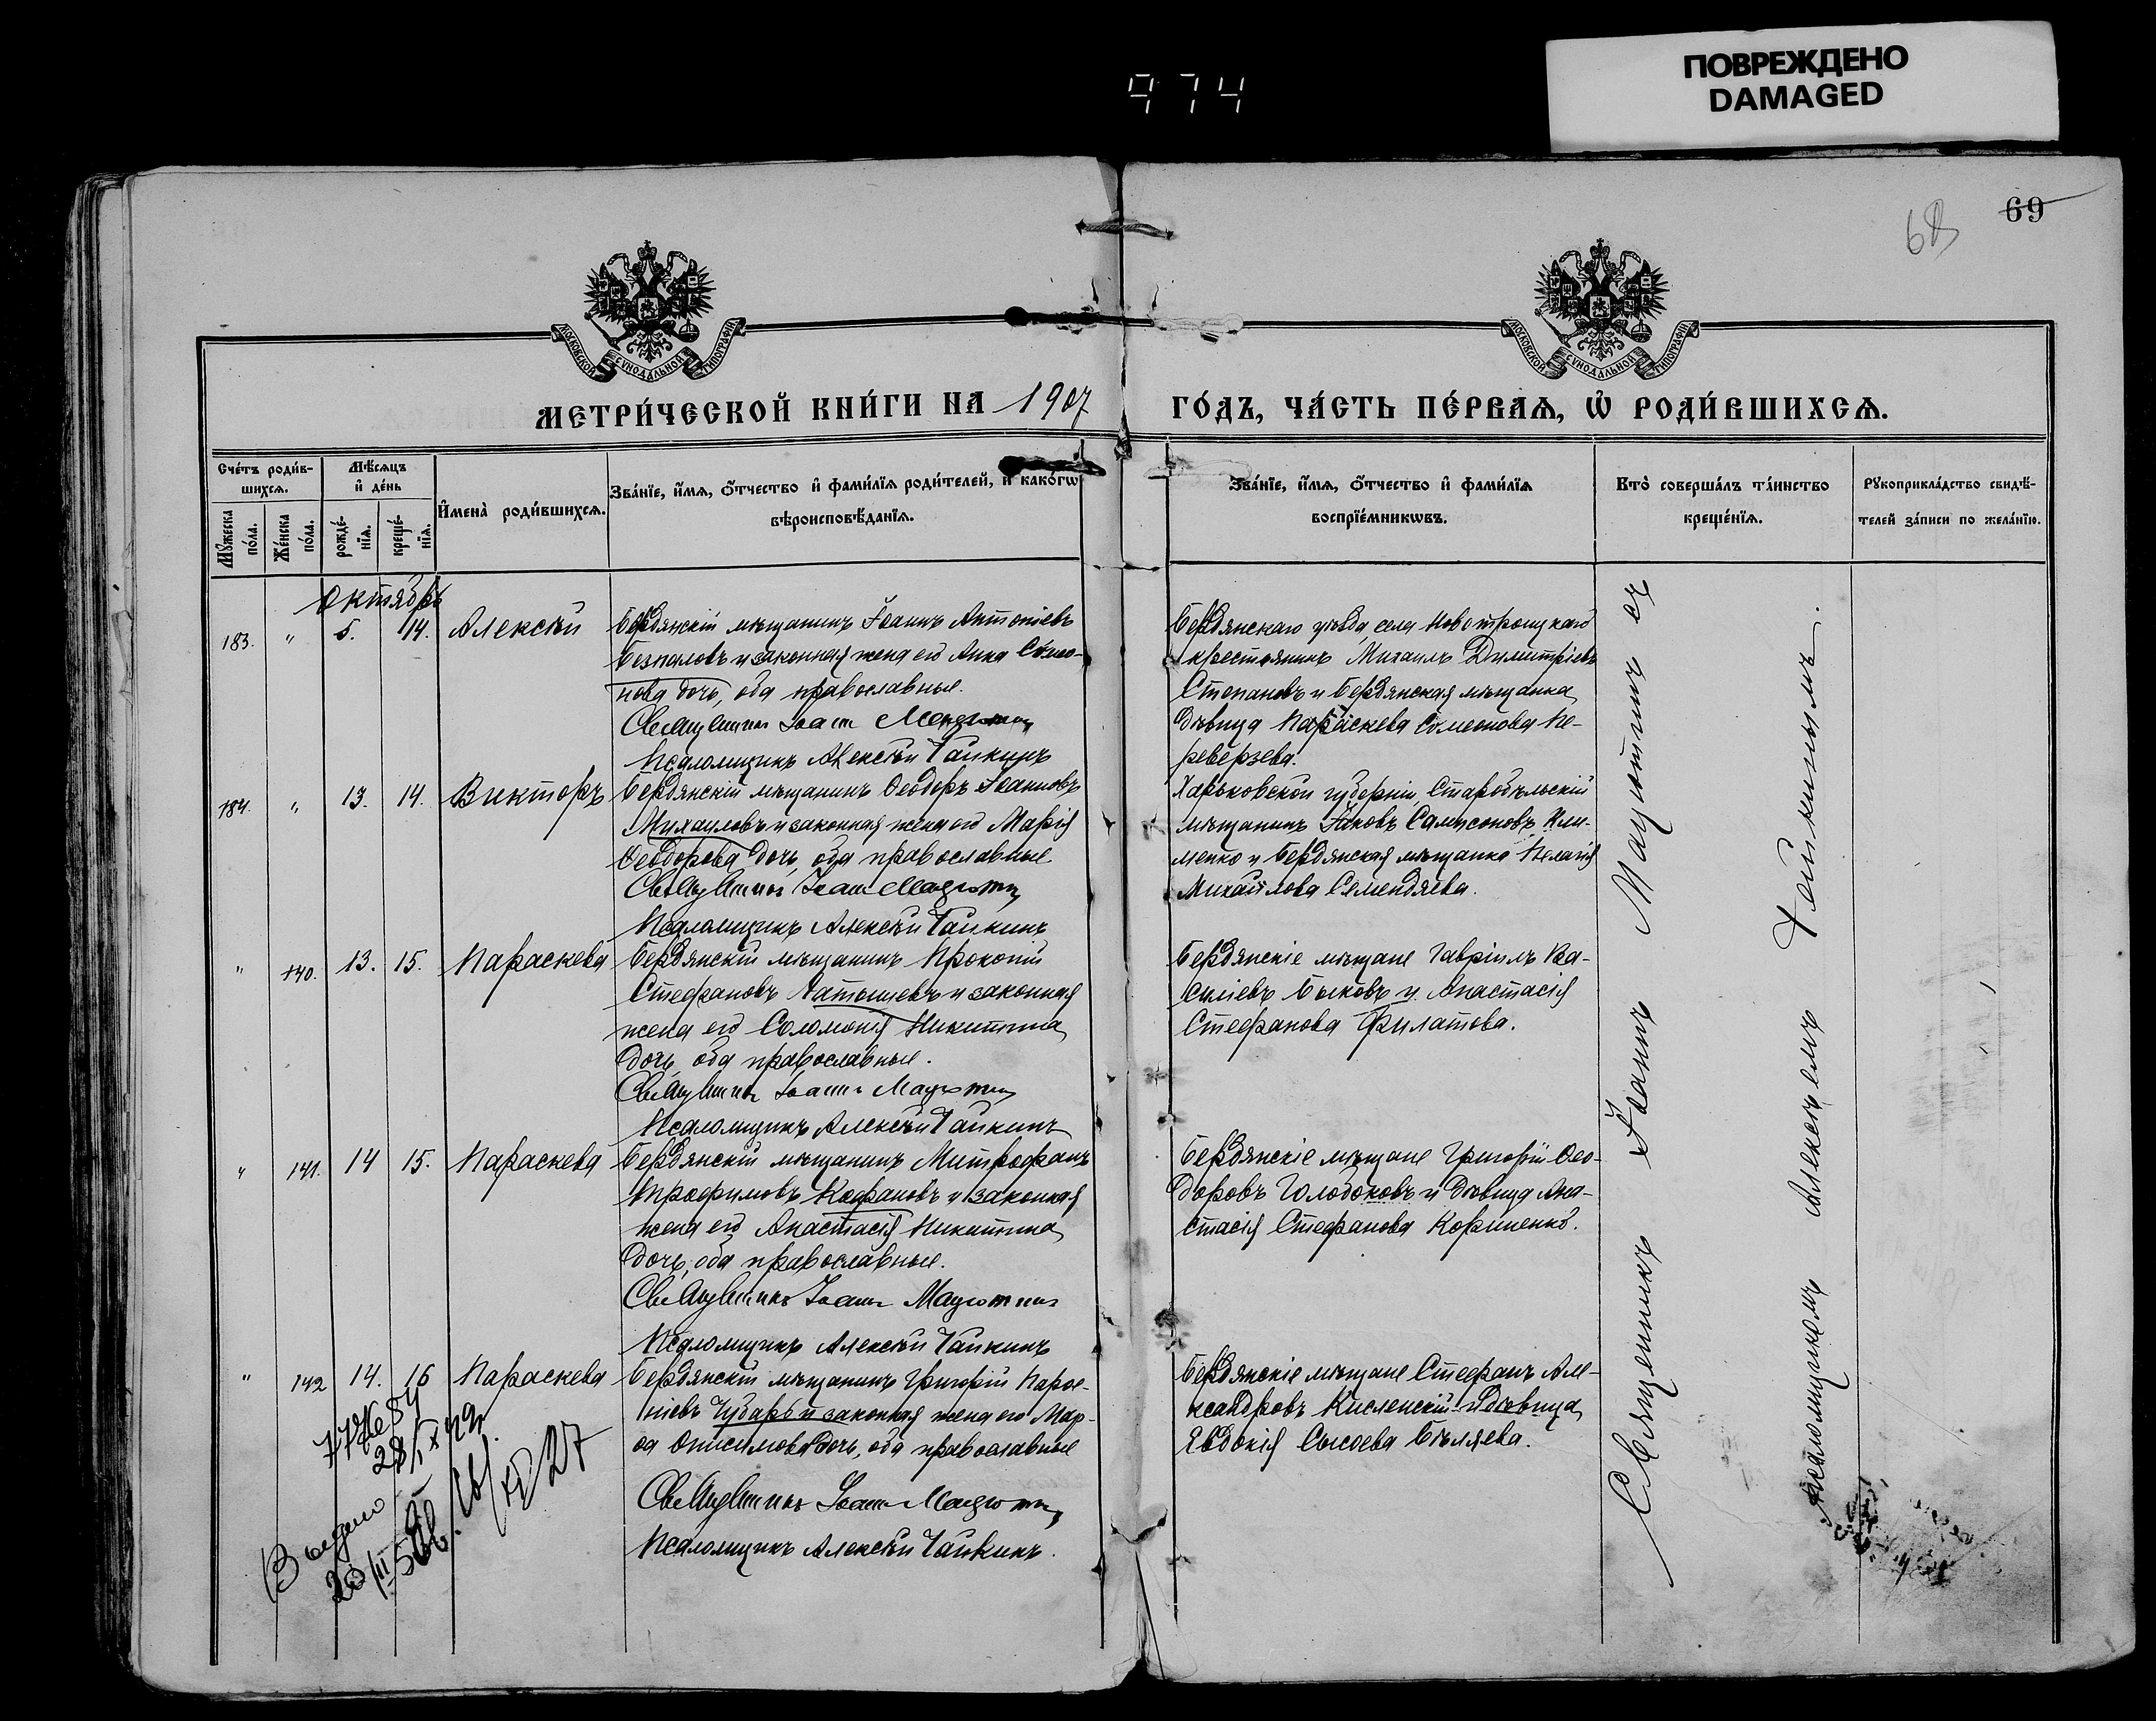 974
ПОВРЕЖДЕНО
DAMAGED
68
69
МОСКОВСКОЙ СѴНОДАЛЬНОЙ ТИПОГРАФІИ
МОСКОВСКОЙ СѴНОДАЛЬНОЙ ТИПОГРАФІИ
МЕТРИ́ЧЕСКОЙ КНИ́ГИ НА 1907
ГО́ДЪ, ЧА́СТЬ ПЕ́РВАѦ, Ѡ҆ РОДИ́ВШИХСѦ.
Сче́тъ роди́в-
шихсѧ.
Мꙋжеска по́ла.
Же́нска по́ла.
Мѣ́сѧцъ
и҆ де́нь
рожде́-
нїѧ.
креще́-
нїѧ.
И҆мена̀ роди́вшихсѧ.
Зва́нїе, и҆́мѧ, ѻ҆́тчество и҆ фами́лїѧ роди́телей, и҆ како́гѡ
вѣроисповѣ́данїѧ.
Зва́нїе, и҆́мѧ, ѻ҆́тчество и҆ фами́лїѧ
воспрїе́мникѡвъ.
Кто̀ соверша́лъ та́инство
креще́нїѧ.
Рꙋкоприкла́дство свидѣ́-
телей за́писи по жела́нїю.
Октябрь
183. " 5. 14. Алексѣй
Бердянскій мѣщанинъ Іоаннъ Антоніевъ
Безпаловъ и законная жена его Анна Симо-
нова дочь, оба православные.
Священникъ Іоаннъ Мацютинъ
Псаломщикъ Алексѣй Чайкинъ
Бердянскаго уѣзда села Новотроицкаго
крестьянинъ Михаилъ Димитріевъ
Степановъ и Бердянская мѣщанка
дѣвица Параскева Симеонова Пе-
реверзева.
184. " 13. 14. Викторъ
Бердянскій мѣщанинъ Ѳеодоръ Іоанновъ
Михайловъ и законная жена его Марія
Ѳеодорова дочь, оба православные
Священникъ Іоаннъ Мацютинъ
Псаломщикъ Алексѣй Чайкинъ
Харьковской губерніи Старобѣльскій
мѣщанинъ Іаковъ Сампсоновъ Кли-
менко и Бердянская мѣщанка Пелагія
Михайлова Семендяева.
" 140. 13. 15. Параскева
Бердянскій мѣщанинъ Прокопій
Стефановъ Латышевъ и законная
жена его Соломонія Никитина
дочь, оба православные.
Священникъ Іоаннъ Мацютинъ
Псаломщикъ Алексѣй Чайкинъ
Бердянскіе мѣщане Гавріилъ Ва-
силіевъ Быковъ и Анастасія
Стефанова Филатова.
" 141. 14 15. Параскева
Бердянскій мѣщанинъ Митрофанъ
Трофимовъ Кофановъ и законная
жена его Анастасія Никитина
дочь, оба православные.
Священникъ Іоаннъ Мацютинъ
Псаломщикъ Алексѣй Чайкинъ
Бердянскіе мѣщане Григорій Ѳео-
доровъ Голобоковъ и дѣвица Ана-
стасія Стефанова Корниенко.
" 142 14. 16 Параскева
Бердянскій мѣщанинъ Григорій Парѳе-
ніевъ Чубарь и законная жена его Мар-
ѳа Онисимова дочь, оба православные
Священникъ Іоаннъ Мацютинъ
Псаломщикъ Алексѣй Чайкинъ.
Бердянскіе мѣщане Стефанъ Але-
ксандровъ Кисленскій и дѣвица
Евдокія Сысоева Бѣляева.
Священникъ Іоаннъ Мацютинъ съ
Псаломщикомъ Алексѣемъ Чайкинымъ.